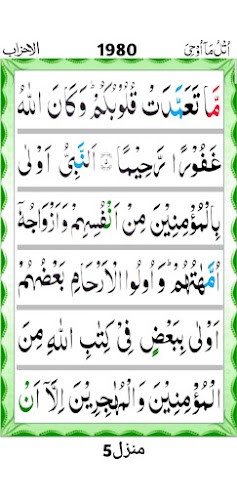 اُتْلُ مَاۤ اُوْحِیَ 1980 الاحزاب
مَّا تَعَمَّدَتْ قُلُوْبُكُمْ ؕ وَكَانَ اللّٰهُ
غَفُوْرًا رَّحِيْمًا ۝۵ اَلنَّبِىُّ اَوْلٰى
بِالْمُؤْمِنِيْنَ مِنْ اَنْفُسِهِمْ وَاَزْوَاجُهٗۤ
اُمَّهٰتُهُمْ ؕ وَاُولُوا الْاَرْحَامِ بَعْضُهُمْ
اَوْلٰى بِبَعْضٍ فِىْ كِتٰبِ اللّٰهِ مِنَ
الْمُؤْمِنِيْنَ وَالْمُهٰجِرِيْنَ اِلَّاۤ اَنْ
منزل5